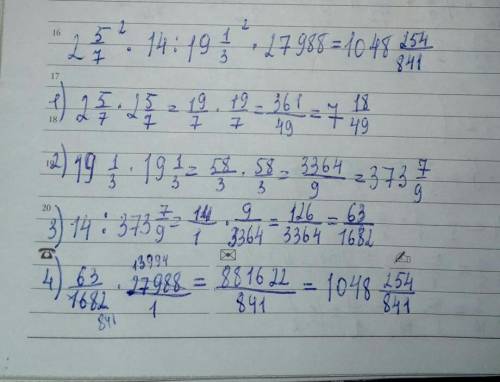 16
2 5/7² · 14 : 19 1/3² · 27988 = 1048 254/841
17
1) 2 5/7 · 2 5/7 = 19/7 · 19/7 = 361/49 = 7 18/49
18
2) 19 1/3 · 19 1/3 = 58/3 · 58/3 = 3364/9 = 373 7/9
20
3) 14 : 373 7/9 = 14/1 · 9/3364 = 126/3364 = 63/1682
13994
4) 63/1682 · 27988/1 = 881622/841 = 1048 254/841
841